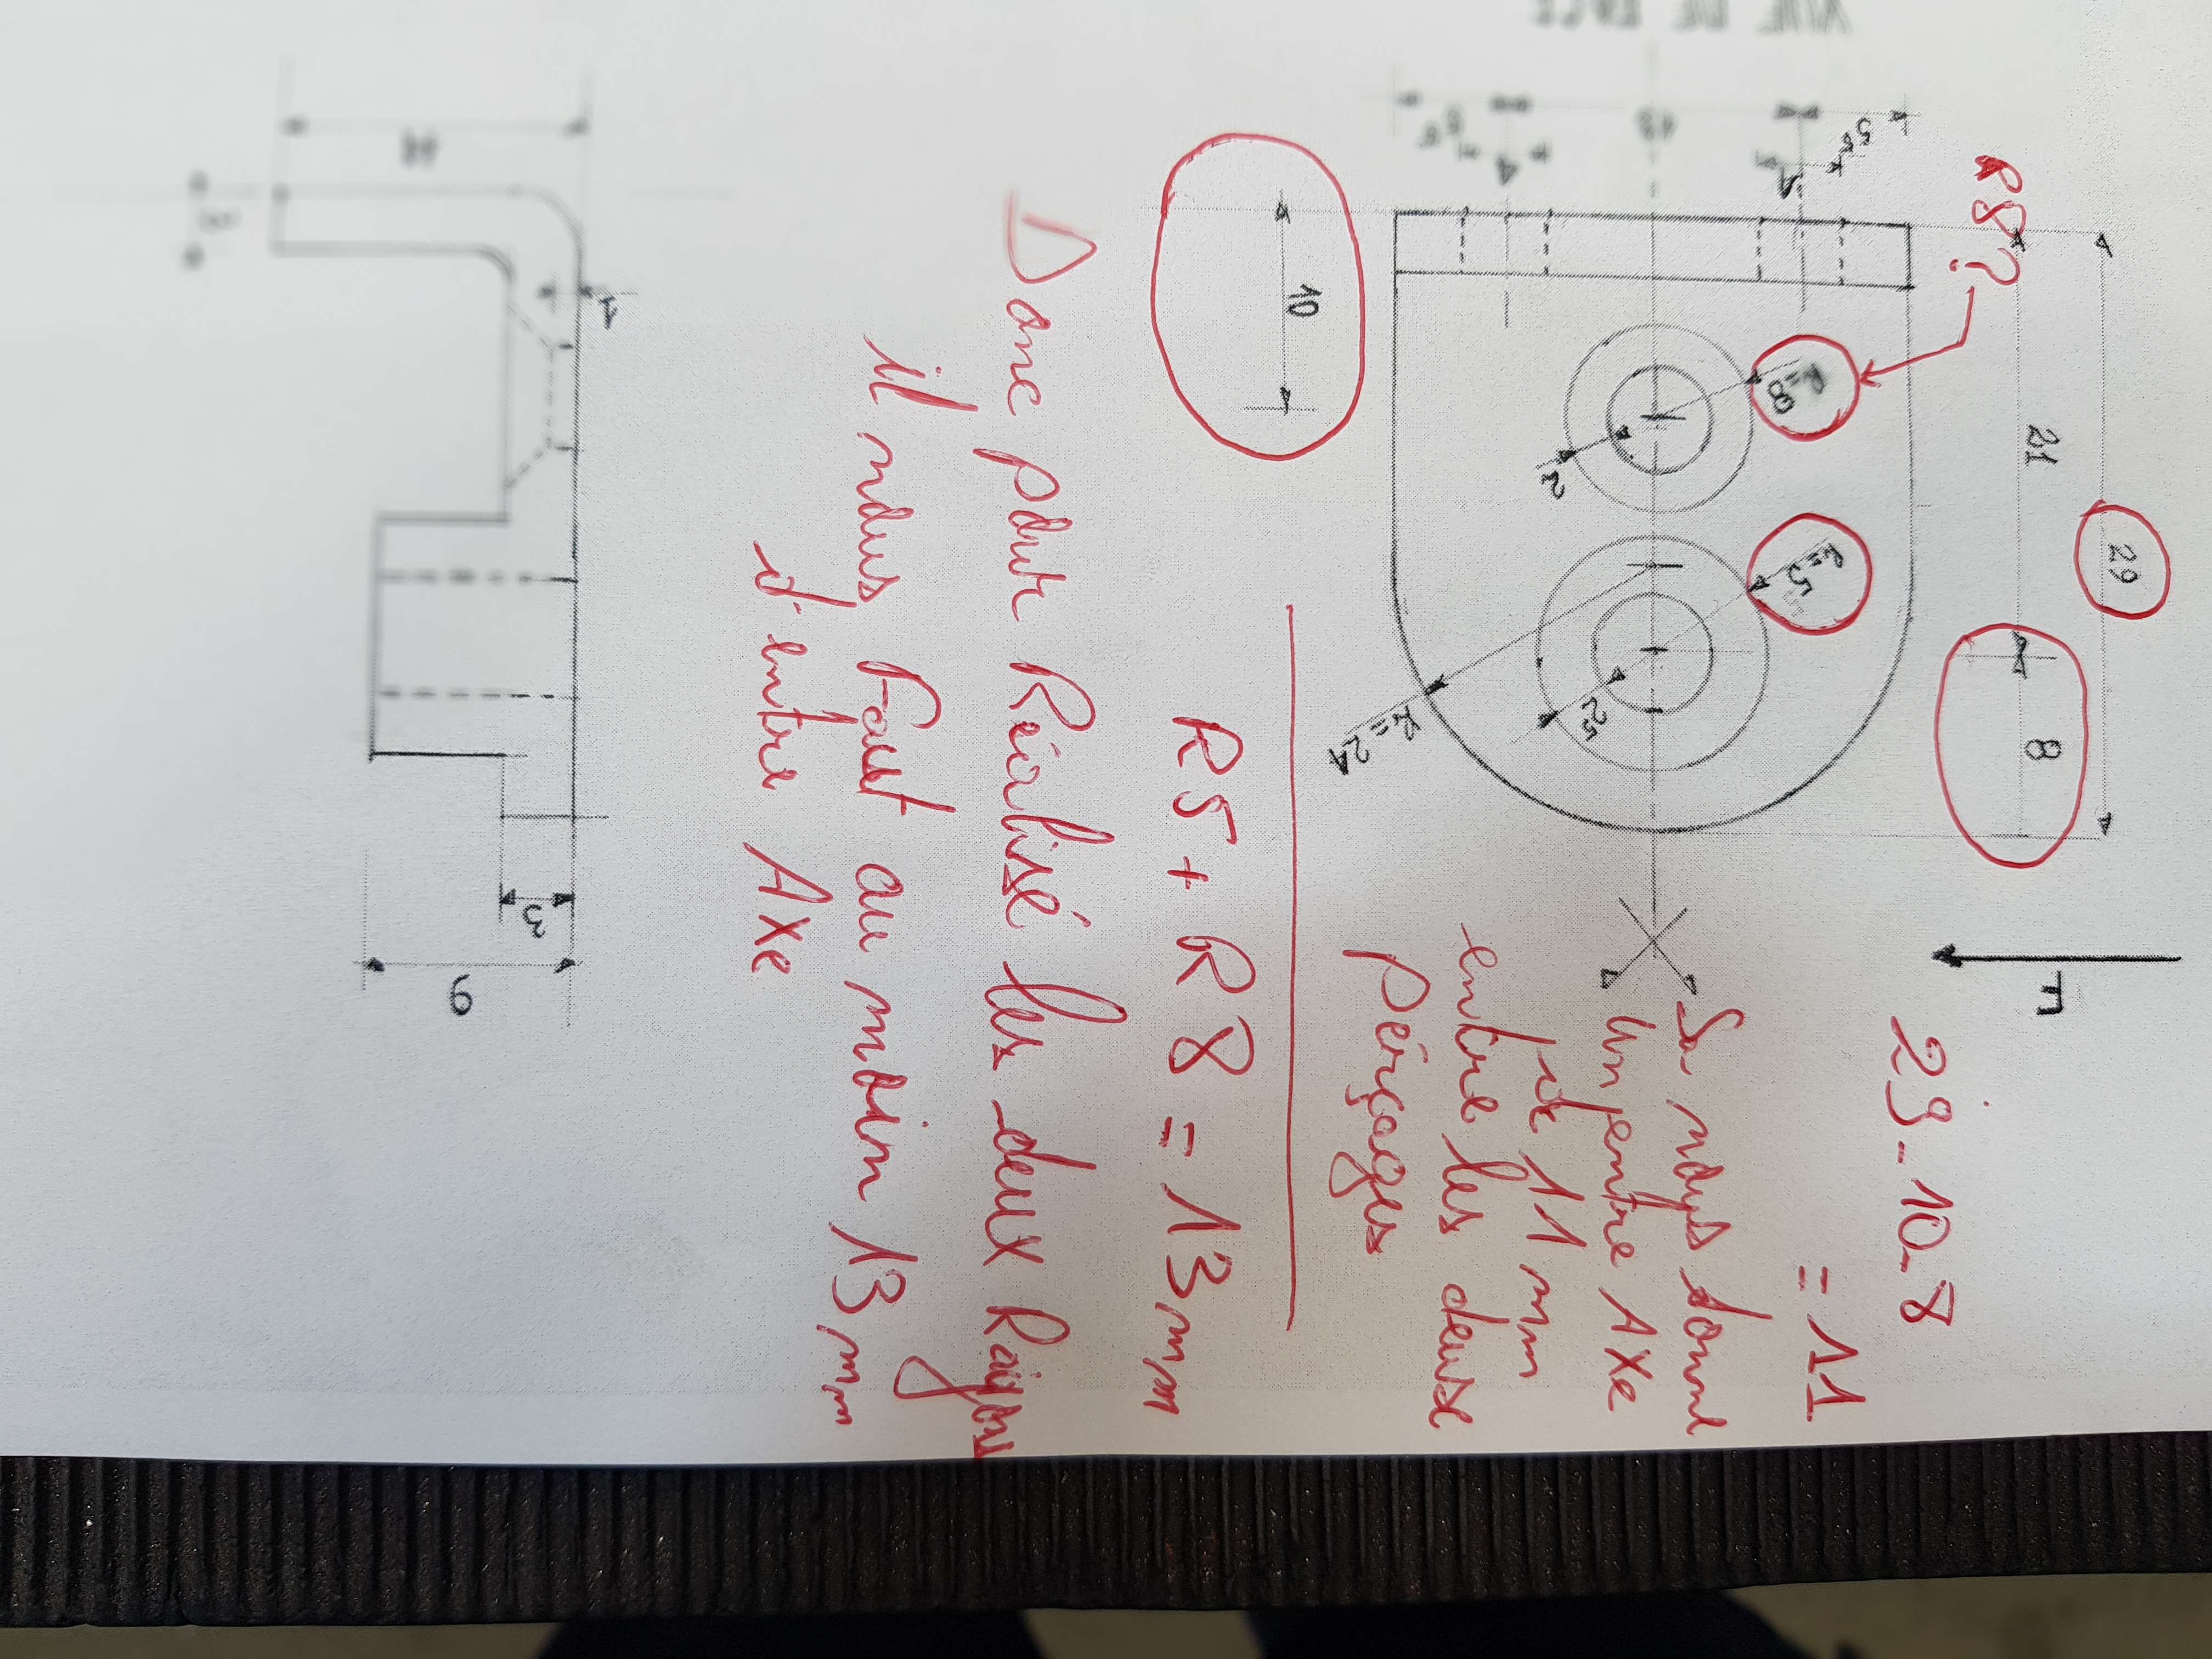 VUE DE FACE
R8?
R=8
2
R=5
25
R=21
10
21
29
8
F
29-10-8
= 11
Sa nous donne
un entre AXe
de 11 mm
entre les deux
perçages
R5 + R8 = 13mm
Donc pour Réalisé les deux Rayons
il nous Faut au moin 13 mm
d'entre AXe
1
3
9